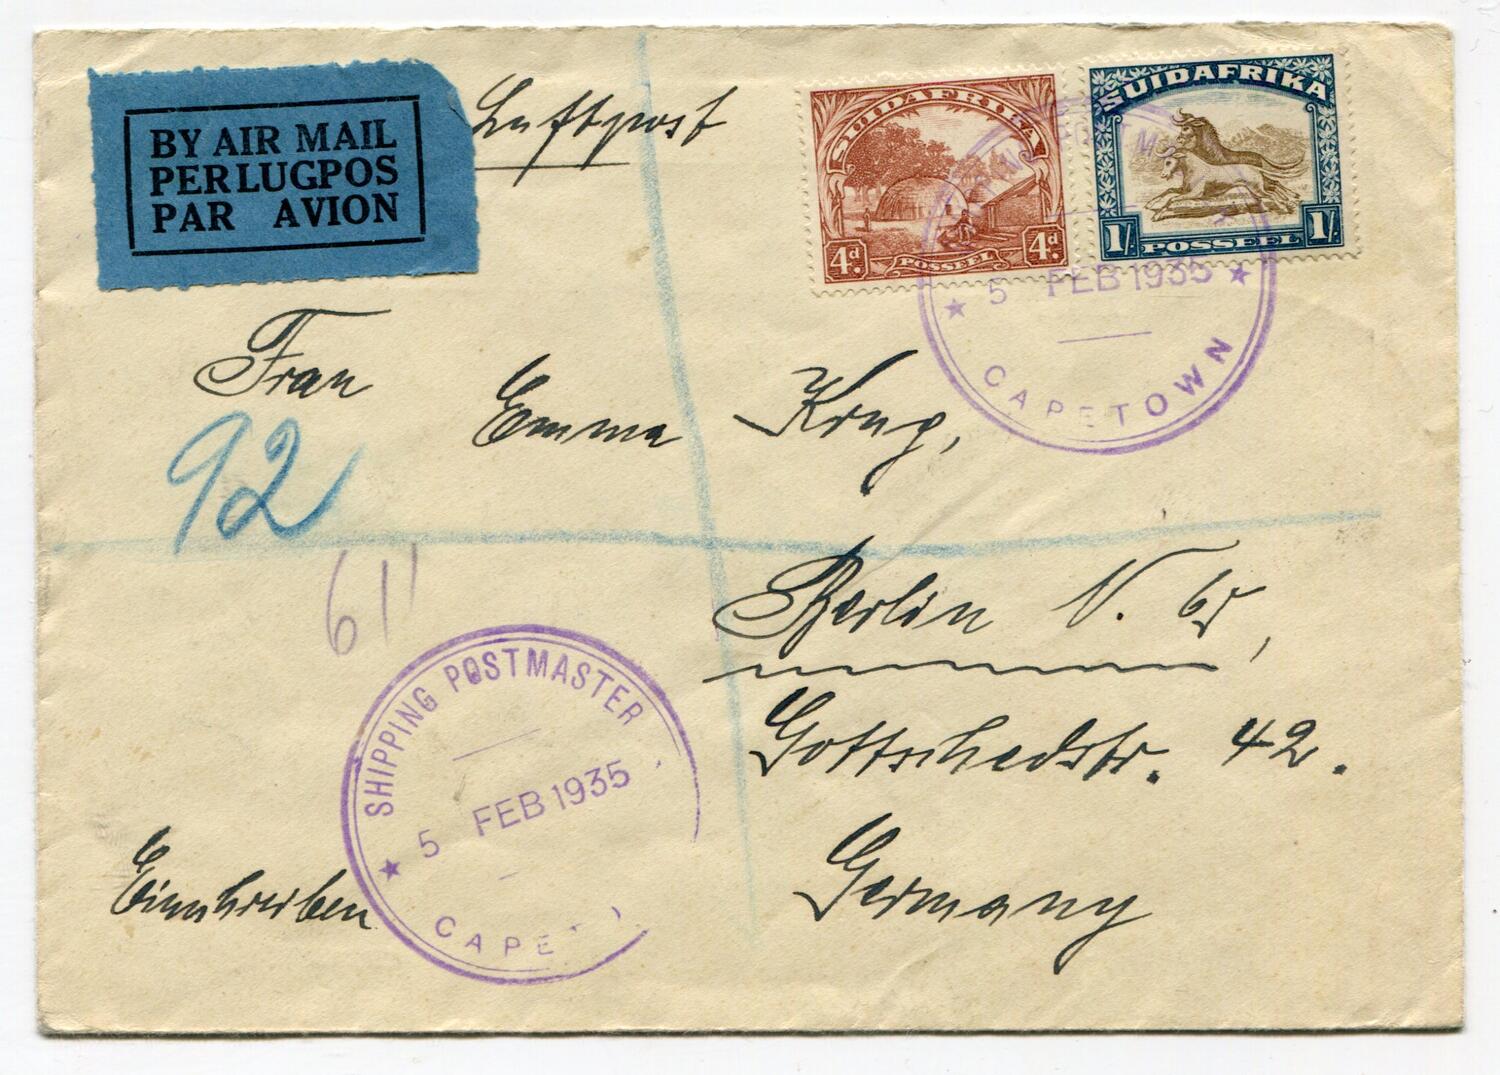 BY AIR MAIL
PER LUGPOS
PAR AVION
Luftpost
SUIDAFRIKA
4d. POSSEEL 4d.
SUIDAFRIKA
1/- POSSEEL 1/-
5 FEB 1935
CAPETOWN
Frau Emma Krug,
92
Berlin N. 65,
61
Gottschedstr. 42.
Germany
SHIPPING POSTMASTER
5 FEB 1935
CAPET
Einschreiben